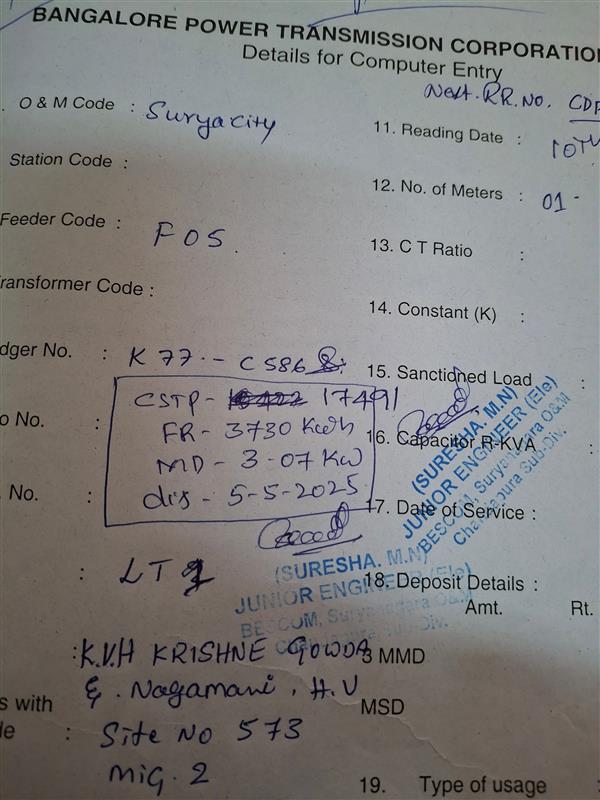 BANGALORE POWER TRANSMISSION CORPORATION
Details for Computer Entry
Next. RR. No.
O & M Code : Suryacity
11. Reading Date :
Station Code :
12. No. of Meters : 01 -
Feeder Code : F05
13. C T Ratio :
Transformer Code :
14. Constant (K) :
dger No. : K 77. - C 586
15. Sanctioned Load :
CSTP - 17491
o No. :
FR - 3730 Kwh
16. Capacitor R-KVA :
MD - 3-07 KW
. No. :
dis - 5-5-2025
17. Date of Service :
(SURESHA. M.N)
JUNIOR ENGINEER (Ele)
BESCOM, Suryanagara O&M
Chandapura Sub-Div.
: LT
(SURESHA. M.N)
JUNIOR ENGINEER (Ele)
BESCOM, Suryanagara O&M
Chandapura Sub-Div.
18. Deposit Details :
Amt. Rt.
: K.V.H KRISHNE GOWDA
3 MMD
& . Nagamani . H.V
s with
MSD
: Site No 573
Mig. 2
19. Type of usage :